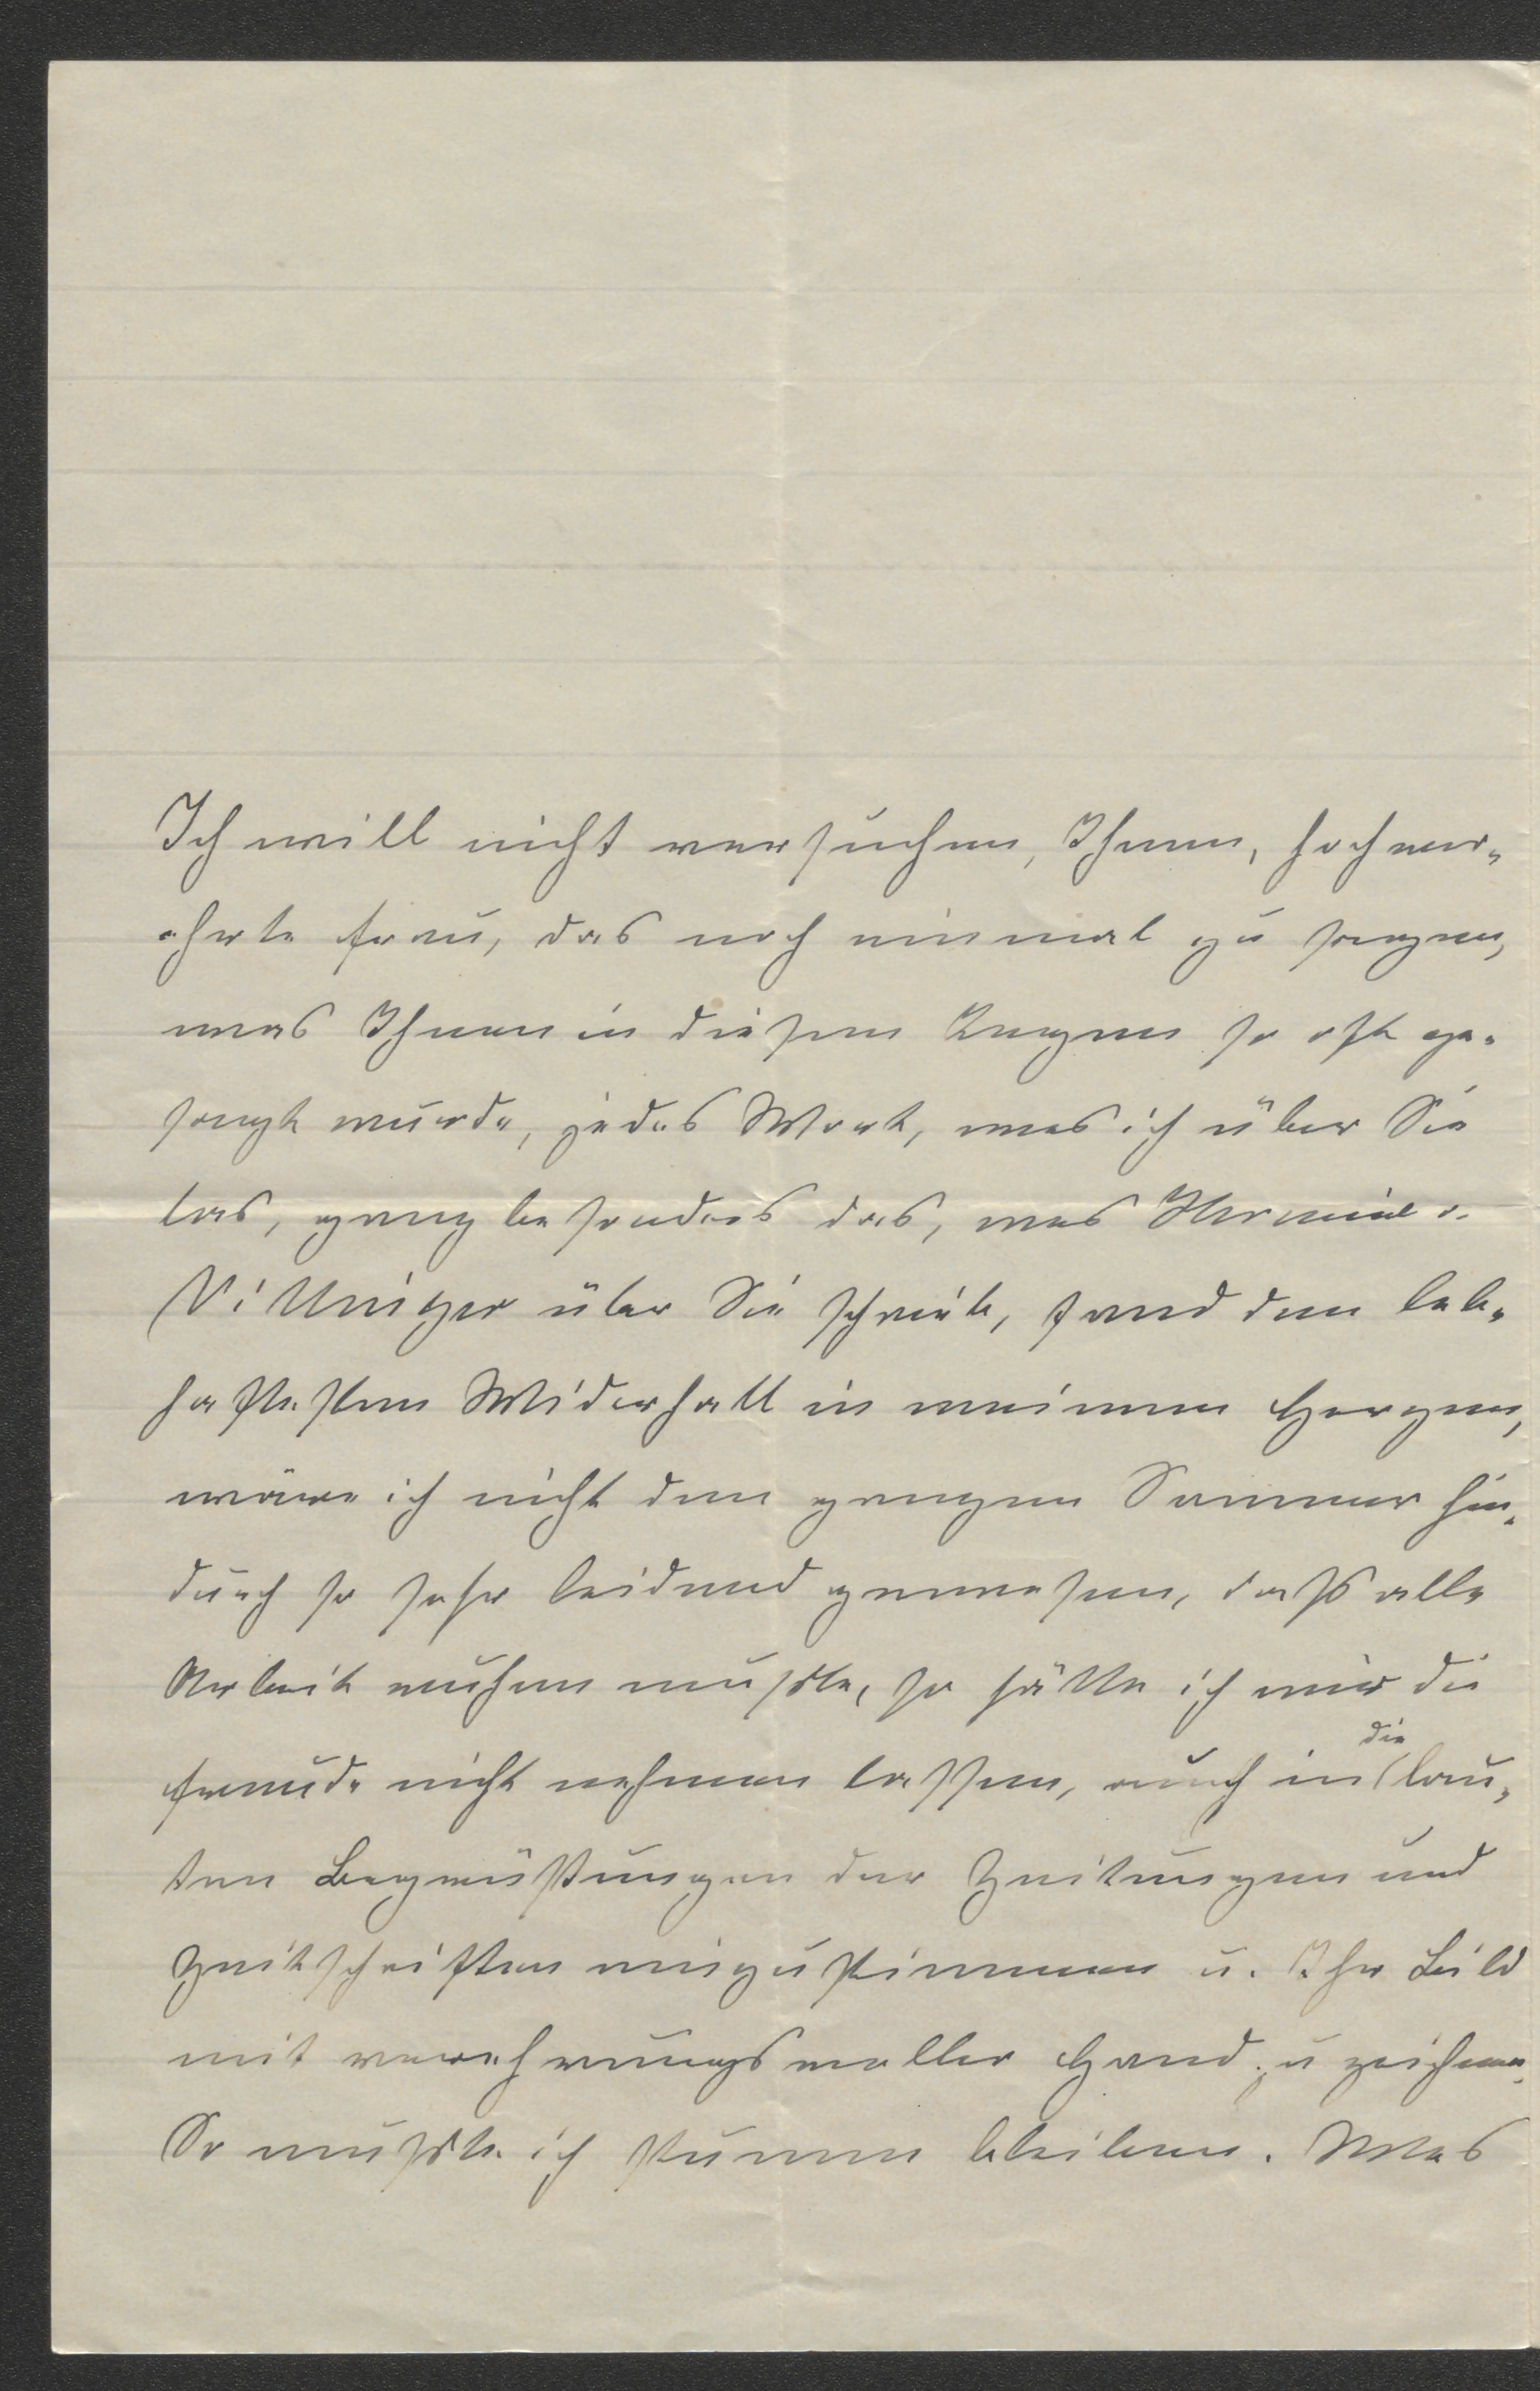 Ich will nicht versuchen, Ihnen, hochver-
ehrte Frau, das noch einmal zu sagen,
was Ihnen in diesen Tagen so oft ge-
sagt wurde, jedes Wort, was ich über Sie
las, ganz besonders das, was Hermine v.
Villinger über Sie schrieb, fand den leb-
haftesten Widerhall in meinem Herzen,
wäre ich nicht den ganzen Sommer hin-
durch so sehr leidend gewesen, dass alle
Arbeit ruhen musste, so hätte ich mir die
Freude nicht nehmen lassen, auch in die lau-
ten Begrüssungen der Zeitungen und
Zeitschriften einzustimmen u. Ihr Bild
mit verehrungsvoller Hand zu zeichnen.
So musste ich stumm bleiben. Was